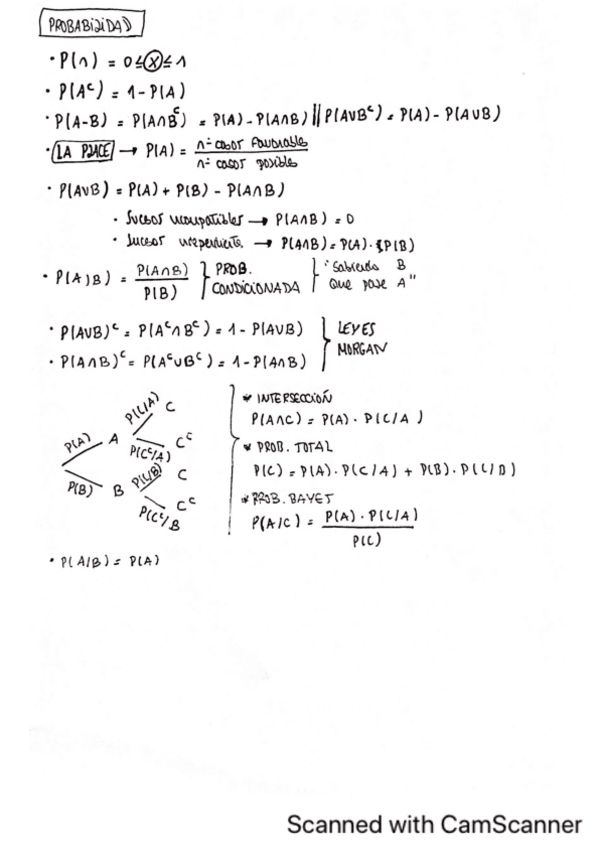 PROBABILIDAD
· P(∩) = 0 ≤ X ≤ 1
· P(Aᶜ) = 1 - P(A)
· P(A-B) = P(A∩Bᶜ) = P(A) - P(A∩B) || P(A∪Bᶜ) = P(A) - P(A∪B)
· LA PLACE → P(A) = nº casos favorables / nº casos posibles
· P(A∪B) = P(A) + P(B) - P(A∩B)
· Sucesos incompatibles → P(A∩B) = 0
· Sucesos → P(A∩B) = P(A) · P(B)
· P(A|B) = P(A∩B) / P(B) } PROB. CONDICIONADA } "Sabiendo B que pase A"
· P(A∪B)ᶜ = P(Aᶜ∩Bᶜ) = 1 - P(A∪B)
· P(A∩B)ᶜ = P(Aᶜ∪Bᶜ) = 1 - P(A∩B)
} LEYES MORGAN
P(A) A P(C/A) C
P(Cᶜ/A) Cᶜ
P(B) B P(C/B) C
P(Cᶜ/B Cᶜ
* INTERSECCIÓN
P(A∩C) = P(A) · P(C/A)
* PROB. TOTAL
P(C) = P(A) · P(C/A) + P(B) · P(C/B)
* PROB. BAYET
P(A/C) = P(A) · P(C/A) / P(C)
· P(A/B) = P(A)
Scanned with CamScanner